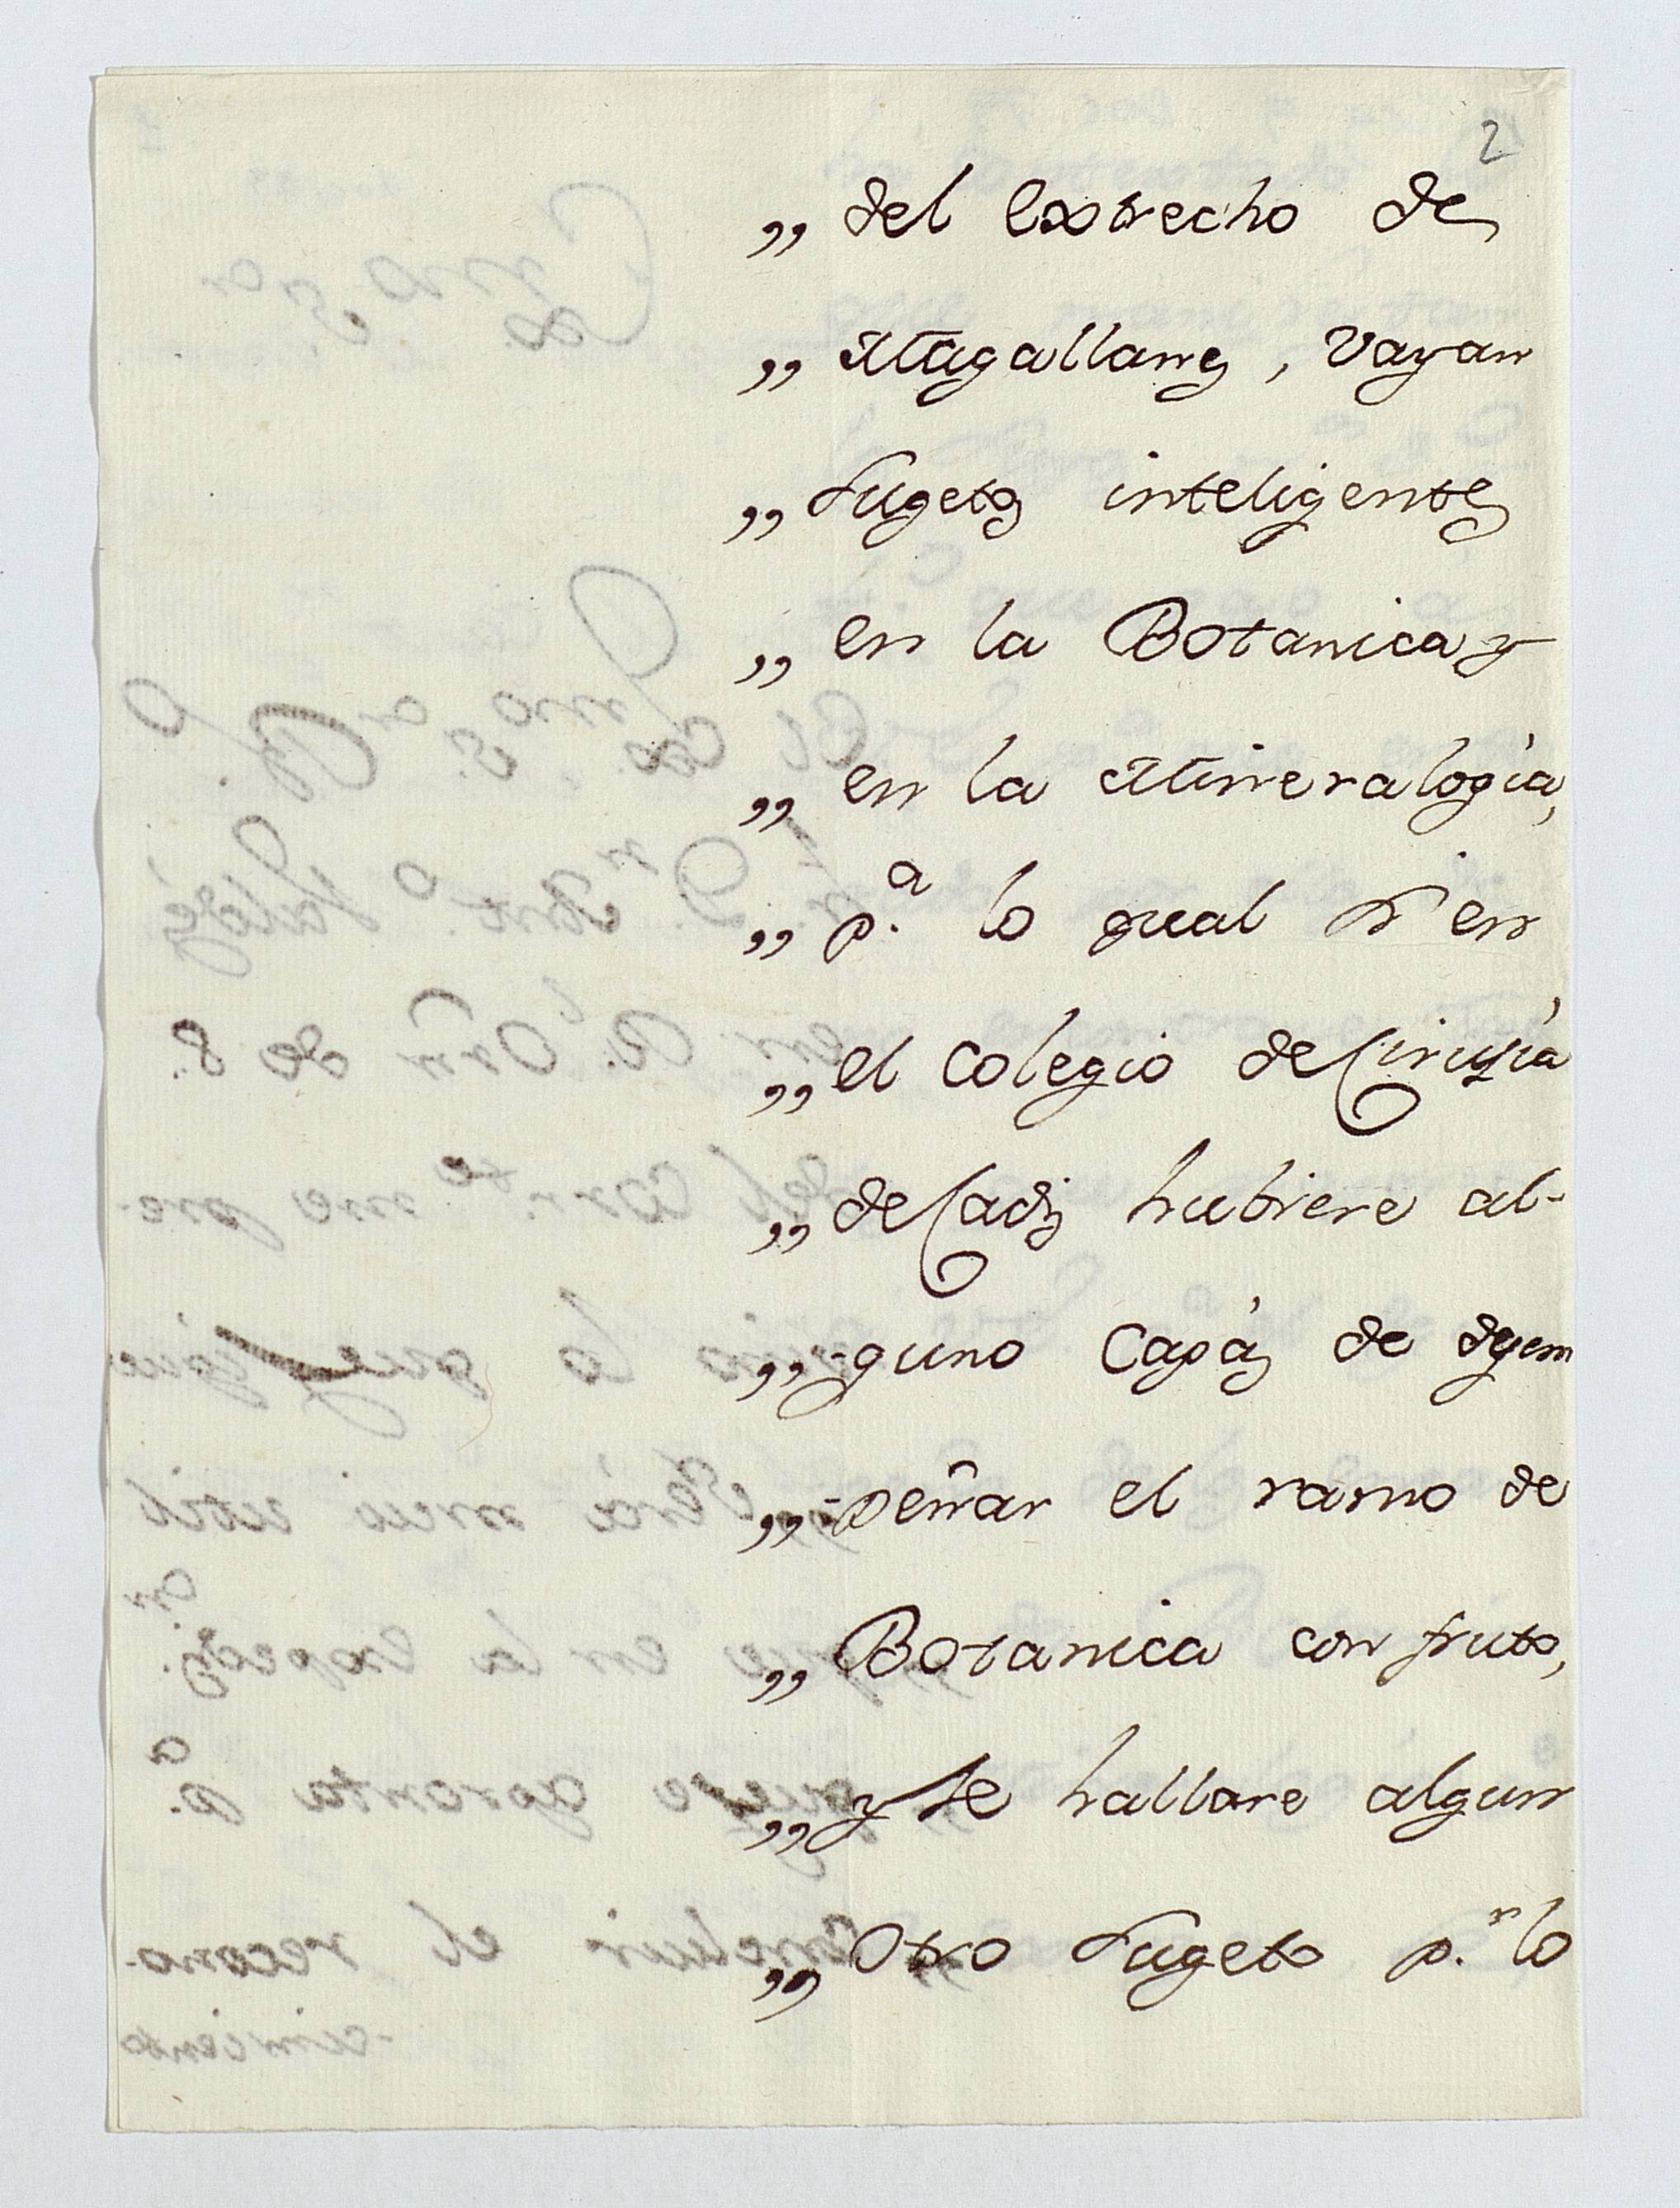 2
„ del Extrecho de
„ Magallanes, vayan
„ Sugetos inteligentes
„ en la Botanica y
„ en la Mineralogìa,
„ p.ª lo qual si en
„ el Colegio de Cirugìa
„ de Cadiz hubiere al-
„ -guno Capàz de desem
„ -peñar el ramo de
„ Botanica con fruto,
„ y se hallare algun
„ Otro Sugeto p.r lo